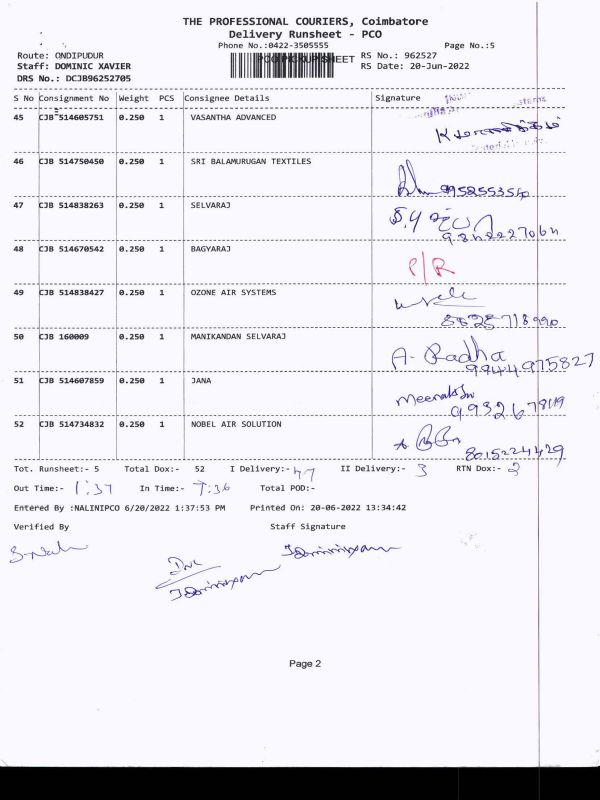 THE PROFESSIONAL COURIERS, Coimbatore
Delivery Runsheet - PCO
Phone No.:0422-3505555 Page No.:5
Route: ONDIPUDUR RS No.: 962527
Staff: DOMINIC XAVIER RS Date: 20-Jun-2022
DRS No.: DCJB96252705
S No Consignment No Weight PCS Consignee Details Signature
45 CJB 514605751 0.250 1 VASANTHA ADVANCED
46 CJB 514750450 0.250 1 SRI BALAMURUGAN TEXTILES
47 CJB 514838263 0.250 1 SELVARAJ
48 CJB 514670542 0.250 1 BAGYARAJ P/R
49 CJB 514838427 0.250 1 OZONE AIR SYSTEMS
50 CJB 160009 0.250 1 MANIKANDAN SELVARAJ A. Radha 9944975827
51 CJB 514607859 0.250 1 JANA
52 CJB 514734832 0.250 1 NOBEL AIR SOLUTION 8015224429
Tot. Runsheet:- 5 Total Dox:- 52 I Delivery:- 47 II Delivery:- 3 RTN Dox:- 2
Out Time:- 1:37 In Time:- 7:36 Total POD:-
Entered By :NALINIPCO 6/20/2022 1:37:53 PM Printed On: 20-06-2022 13:34:42
Verified By Staff Signature
Page 2